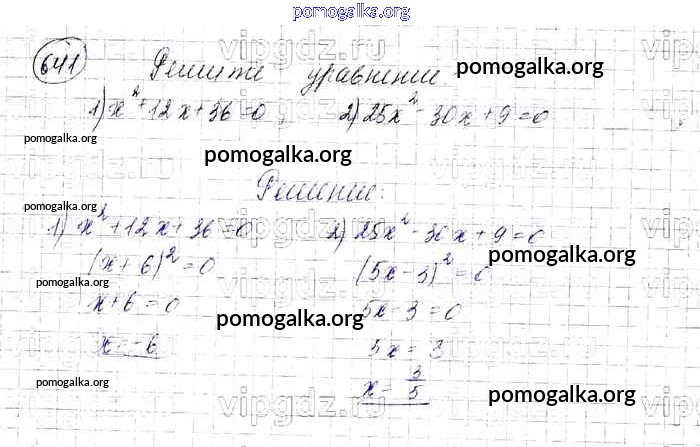 pomogalka.org
vipgdz.ru
641 Решите уравнение. pomogalka.org
1) x²+12x+36=0, 2) 25x²-30x+9=0
pomogalka.org
pomogalka.org
vipgdz.ru
Решение:
pomogalka.org
1) x²+12x+36=0 2) 25x²-30x+9=0
(x+6)²=0 (5x-3)²=0 pomogalka.org
pomogalka.org
x+6=0 5x-3=0
pomogalka.org
x=-6 5x=3
pomogalka.org
x=3/5 pomogalka.org
vipgdz.ru